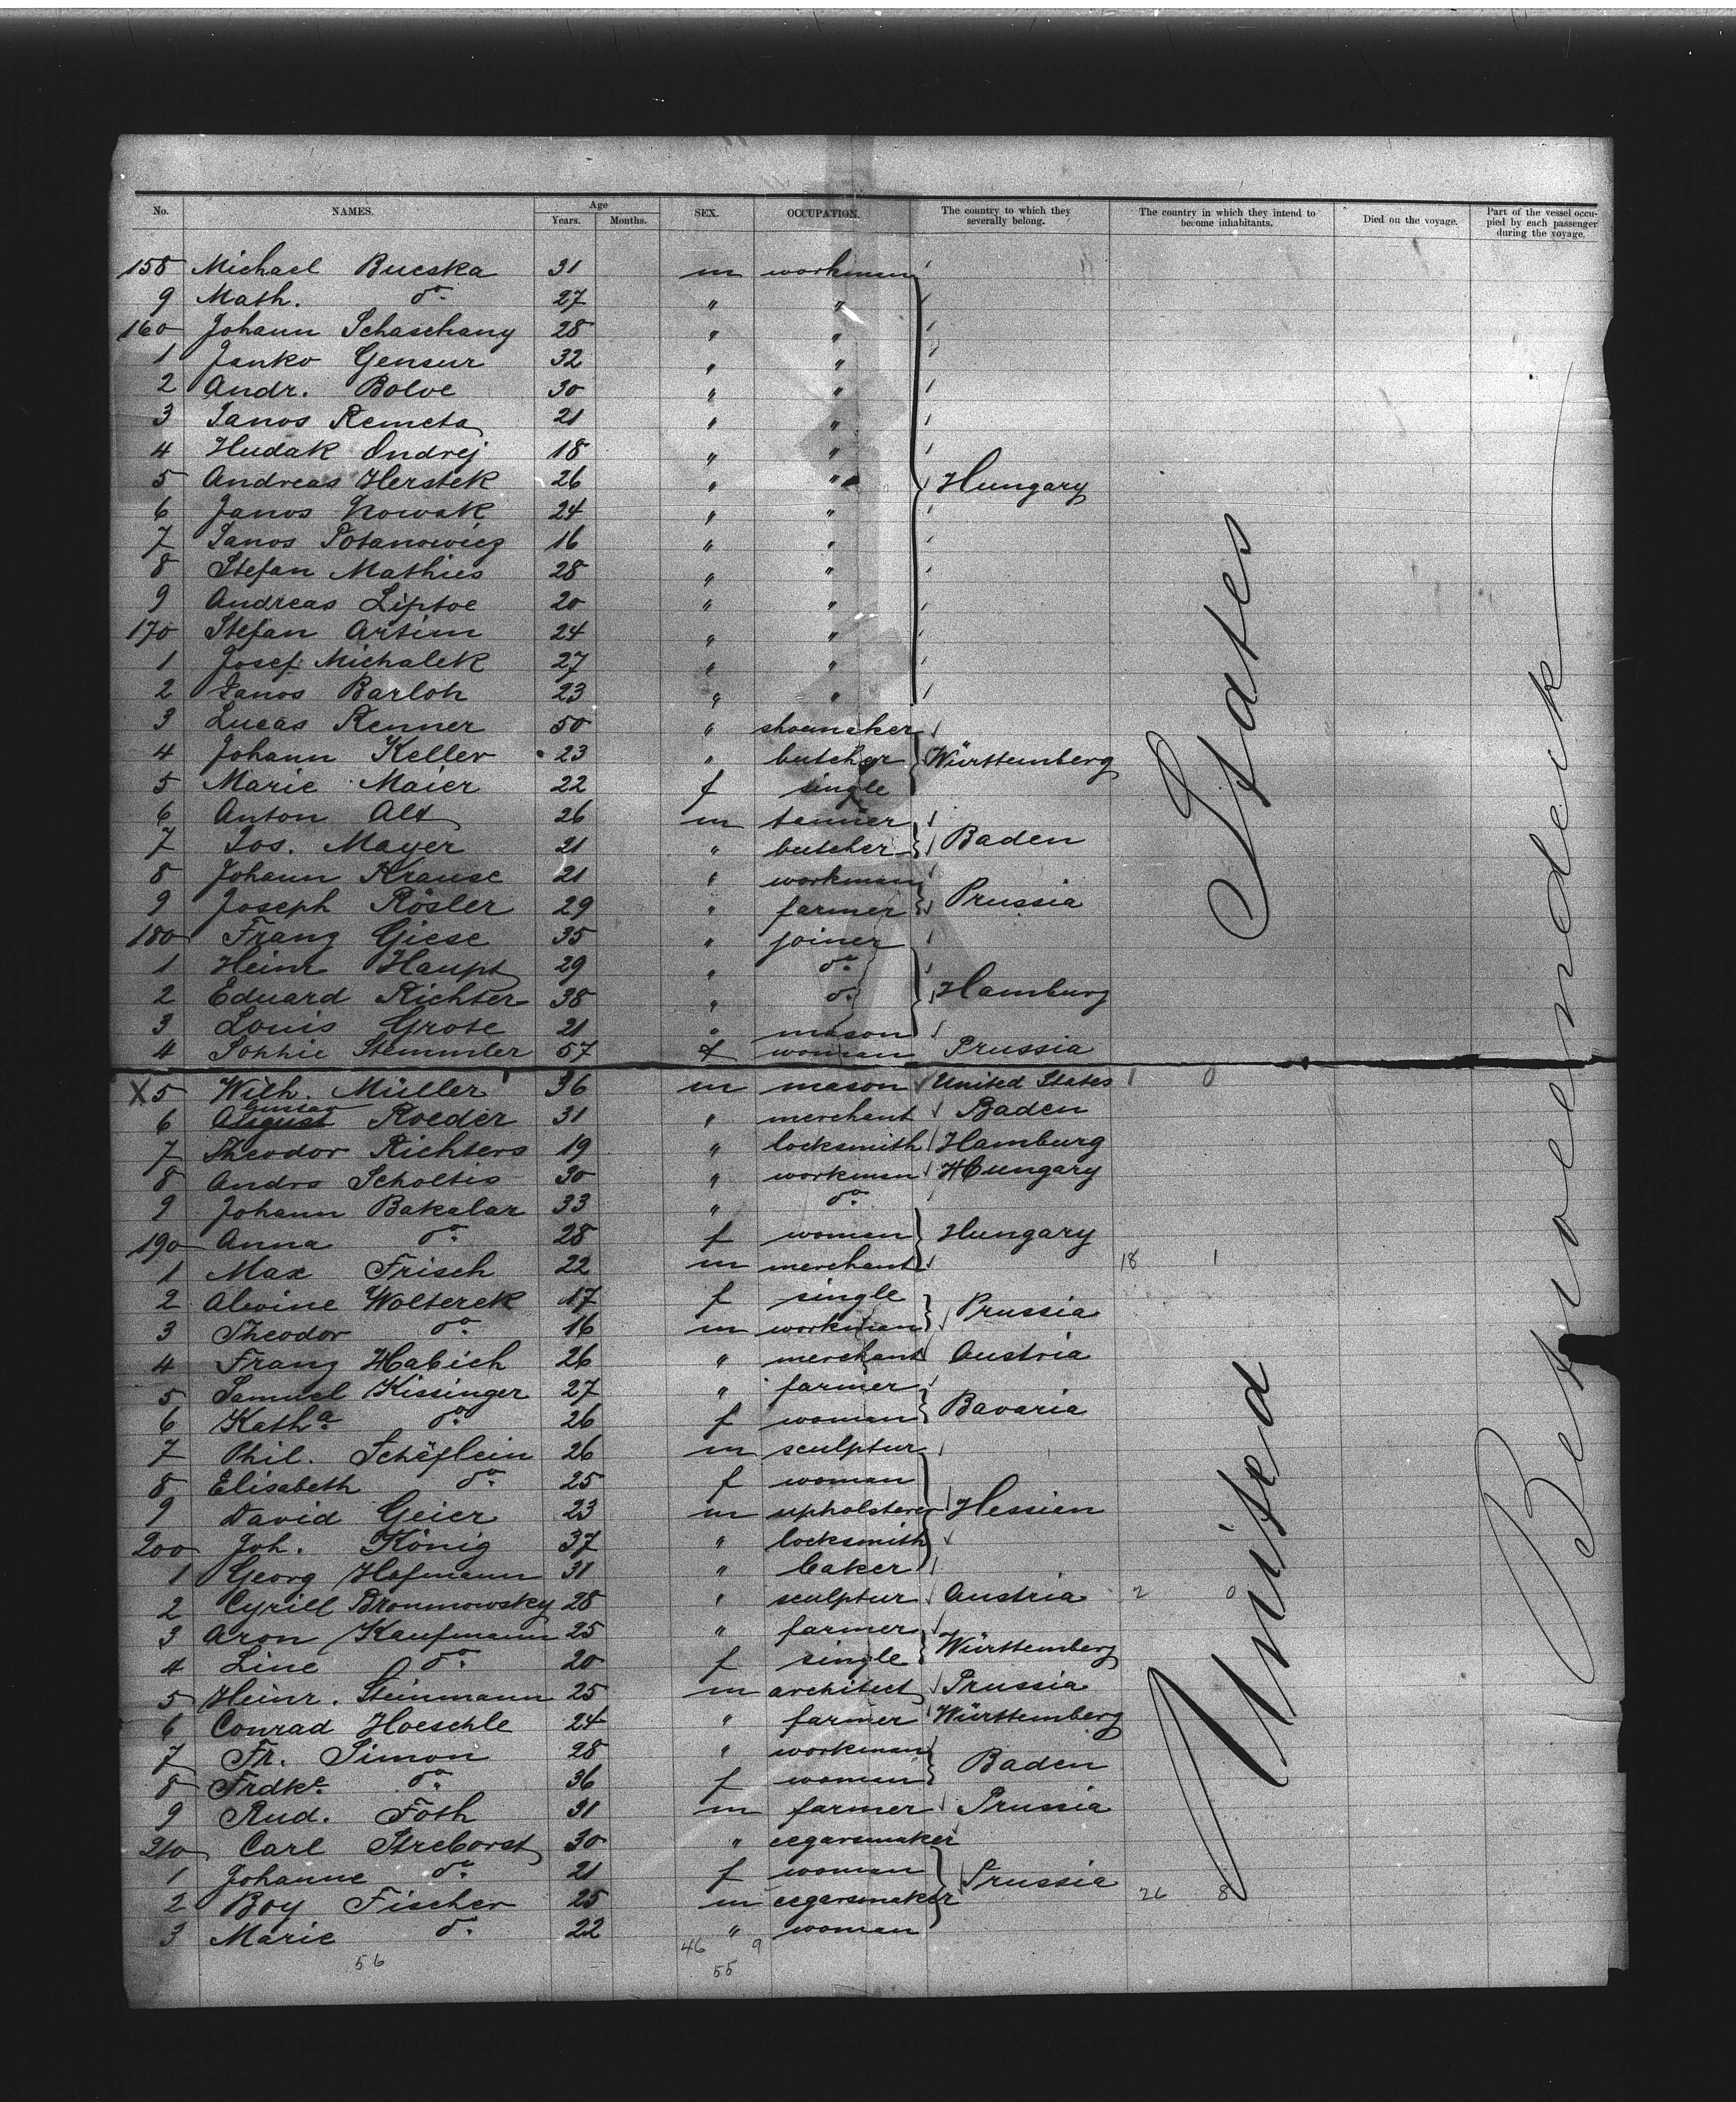 No. NAMES. Age Years. Months. SEX. OCCUPATION. The country to which they severally belong. The country in which they intend to become inhabitants. Died on the voyage. Part of the vessel occupied by each passenger during the voyage.
158 Michael Bucska 31 m workman
9 Math. do. 27 " "
160 Johann Schaschany 28 " "
1 Janko Gensur 32 " "
2 Andr. Bolve 30 " "
3 Janos Remeta 21 " "
4 Hudak Ondrej 18 " "
5 Andreas Herstek 26 " " Hungary
6 Janos Nowak 24 " "
7 Janos Potanowicz 16 " "
8 Stefan Mathies 28 " "
9 Andreas Liptoe 20 " "
170 Stefan Artim 24 " "
1 Josef Michalek 27 " "
2 Janos Barloh 23 " "
3 Lucas Renner 50 " shoemaker
4 Johann Keller 23 " butcher Württemberg
5 Marie Maier 22 f single
6 Anton Alt 26 m tanner
7 Jos. Mayer 21 " butcher Baden
8 Johann Krause 21 " workman
9 Joseph Rösler 29 " farmer Prussia
180 Franz Giese 35 " joiner
1 Heinr Haupt 29 " do.
2 Eduard Richter 38 " do. Hamburg
3 Louis Grote 21 " mason
4 Sophie Stemmler 57 f woman Prussia
X5 Wilh. Müller 36 m mason United States 1 0
6 August Gustav Roeder 31 " merchant Baden
7 Theodor Richters 19 " locksmith Hamburg
8 Andrs Scholtis 30 " workman Hungary
9 Johann Bakalar 33 " do.
190 Anna do. 28 f woman Hungary
1 Max Frisch 22 m merchant 18 1
2 Alwine Wolterek 17 f single
3 Theodor do. 16 m workman Prussia
4 Franz Habich 26 " merchant Austria
5 Samuel Kissinger 27 " farmer
6 Katha do. 26 f woman Bavaria
7 Phil. Schäflein 26 m sculptur
8 Elisabeth do. 25 f woman
9 David Geier 23 m upholsterer Hessien
200 Joh. König 37 " locksmith
1 Georg Hofmann 31 " baker
2 Cyrill Bronmowsky 28 " sculptur Austria 2 0
3 Aron Kaufmann 25 " farmer
4 Line do. 20 f single Württemberg
5 Heinr. Steinmann 25 m architect Prussia
6 Conrad Hoeschle 24 " farmer Württemberg
7 Fr. Simon 28 " workman
8 Frdke. do. 36 f woman Baden
9 Rud. Foth 31 m farmer Prussia
210 Carl Streborst 30 " cegarsmaker
1 Johanne do. 21 f woman Prussia
2 Boy Fischer 25 m cegarsmaker 26 8
3 Marie do. 22 " woman
56 46 9
55
United States
Betweendeck